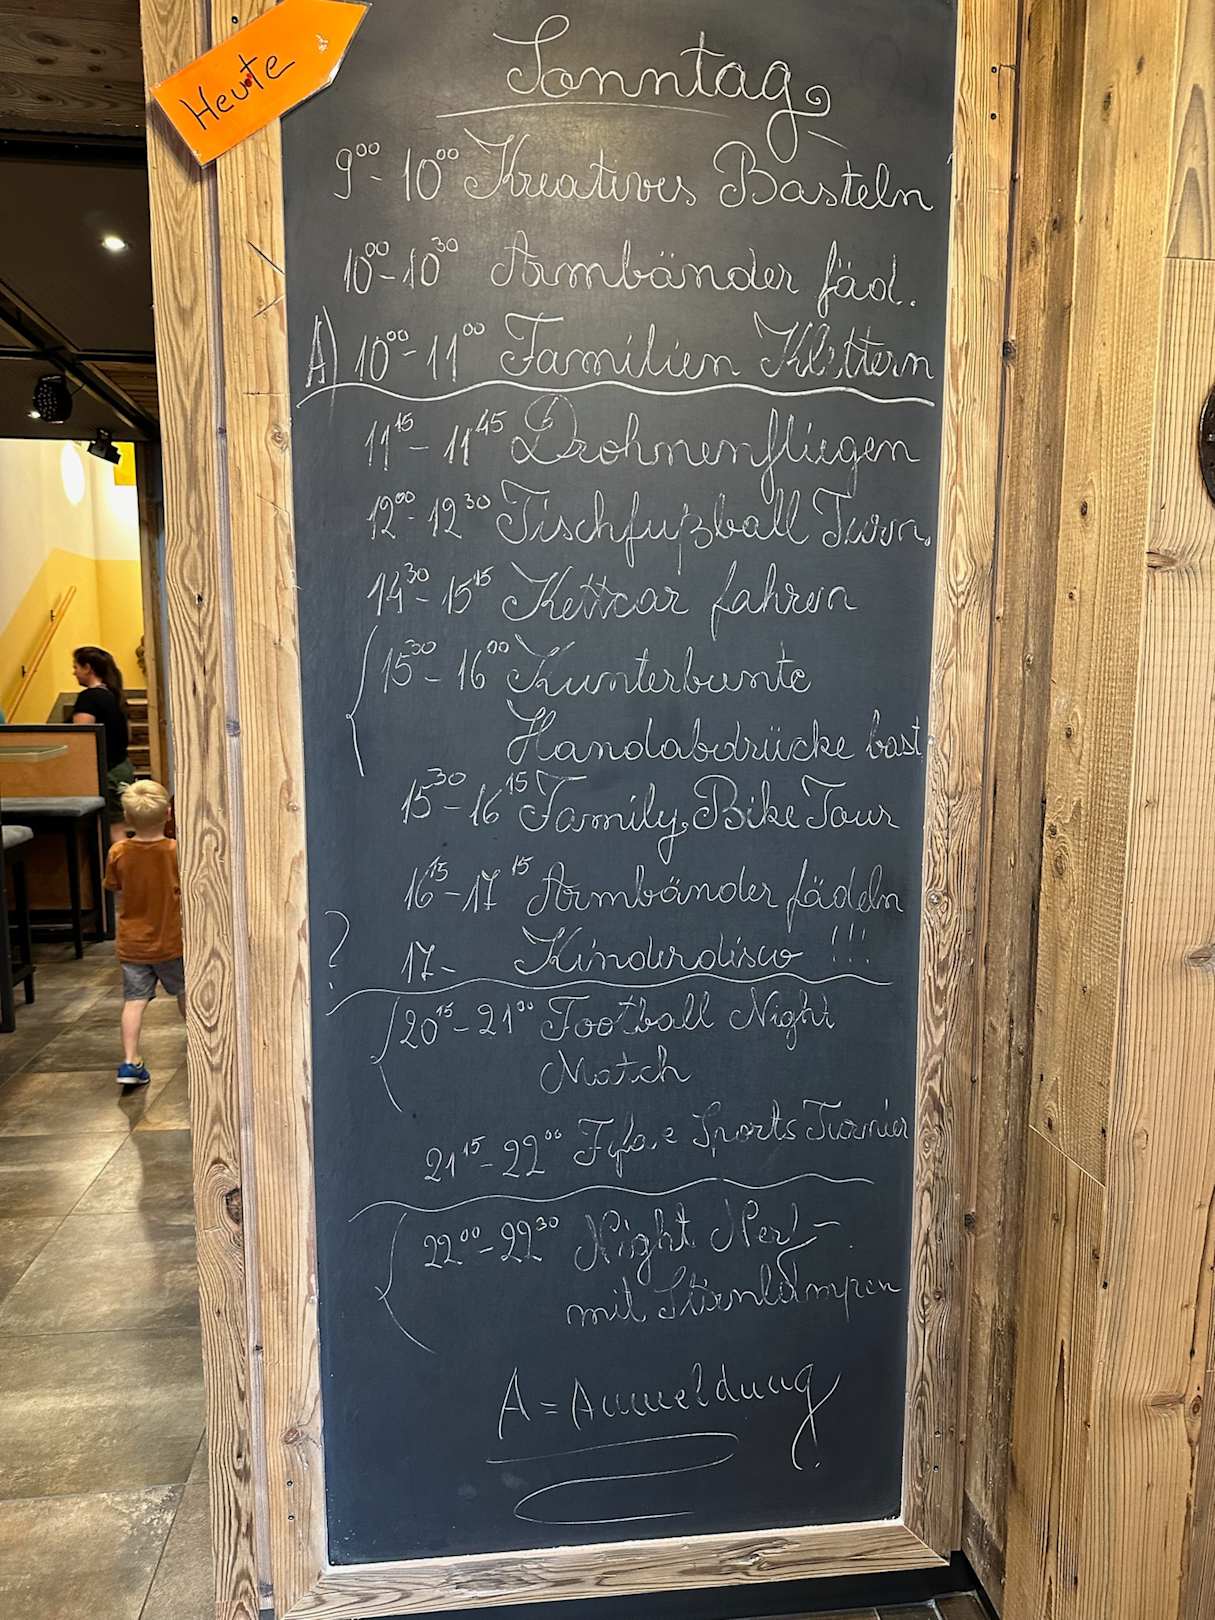 Heute
Sonntag
9⁰⁰-10⁰⁰ Kreatives Basteln
10⁰⁰-10³⁰ Armbänder fäd.
A) 10⁰⁰-11⁰⁰ Familien Klettern
11¹⁵-11⁴⁵ Drohnenfliegen
12⁰⁰-12³⁰ Tischfußball Turn.
14³⁰-15¹⁵ Kettcar fahren
15³⁰-16⁰⁰ Kunterbunte
Handabdrücke bast
15³⁰-16¹⁵ Family Bike Tour
16¹⁵-17¹⁵ Armbänder fädeln
? 17- Kinderdisco !!!
20¹⁵-21⁰⁰ Football Night
Match
21¹⁵-22⁰⁰ Fifa e Sports Turnier
22⁰⁰-22³⁰ Night
mit Stirnlampen
A = Anmeldung